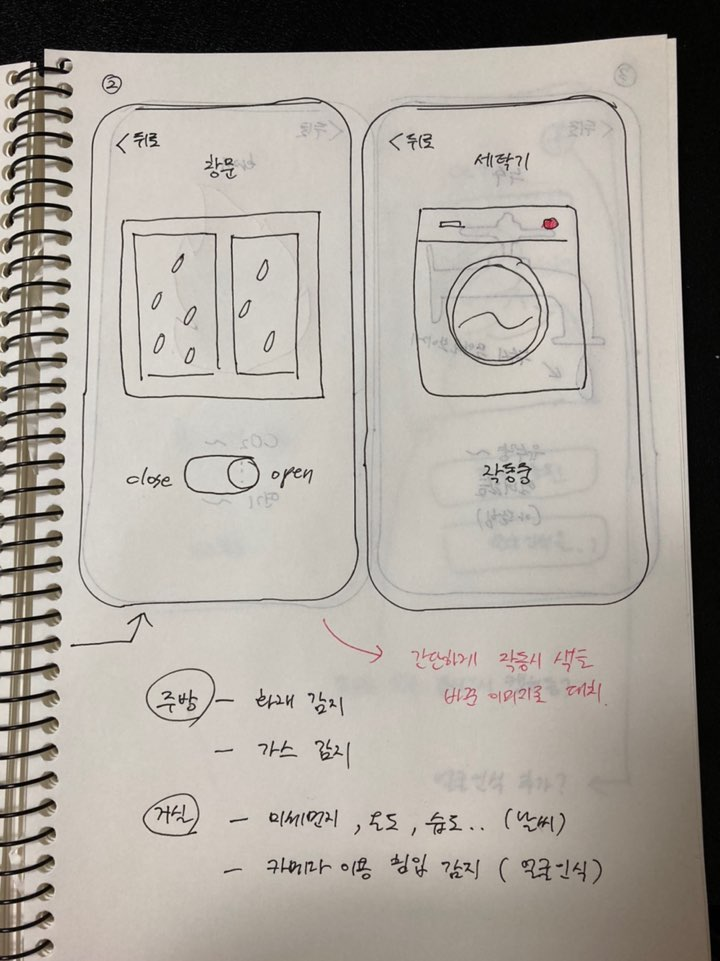 ②
< 뒤로
창문
close open
< 뒤로
세탁기
작동중
간단하게 작동시 색을
바꾼 이미지로 대치.
주방 - 화재 감지
- 가스 감지
거실 - 미세먼지, 온도, 습도.. (날씨)
- 카메라 이용 침입 감지 (얼굴인식)